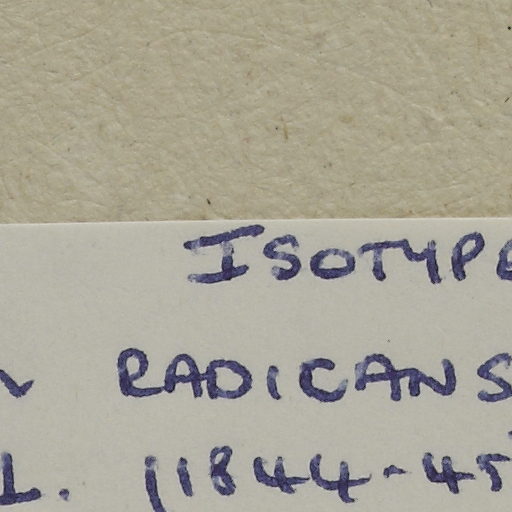 ISOTYPE
RADICANS
1. (1844-45